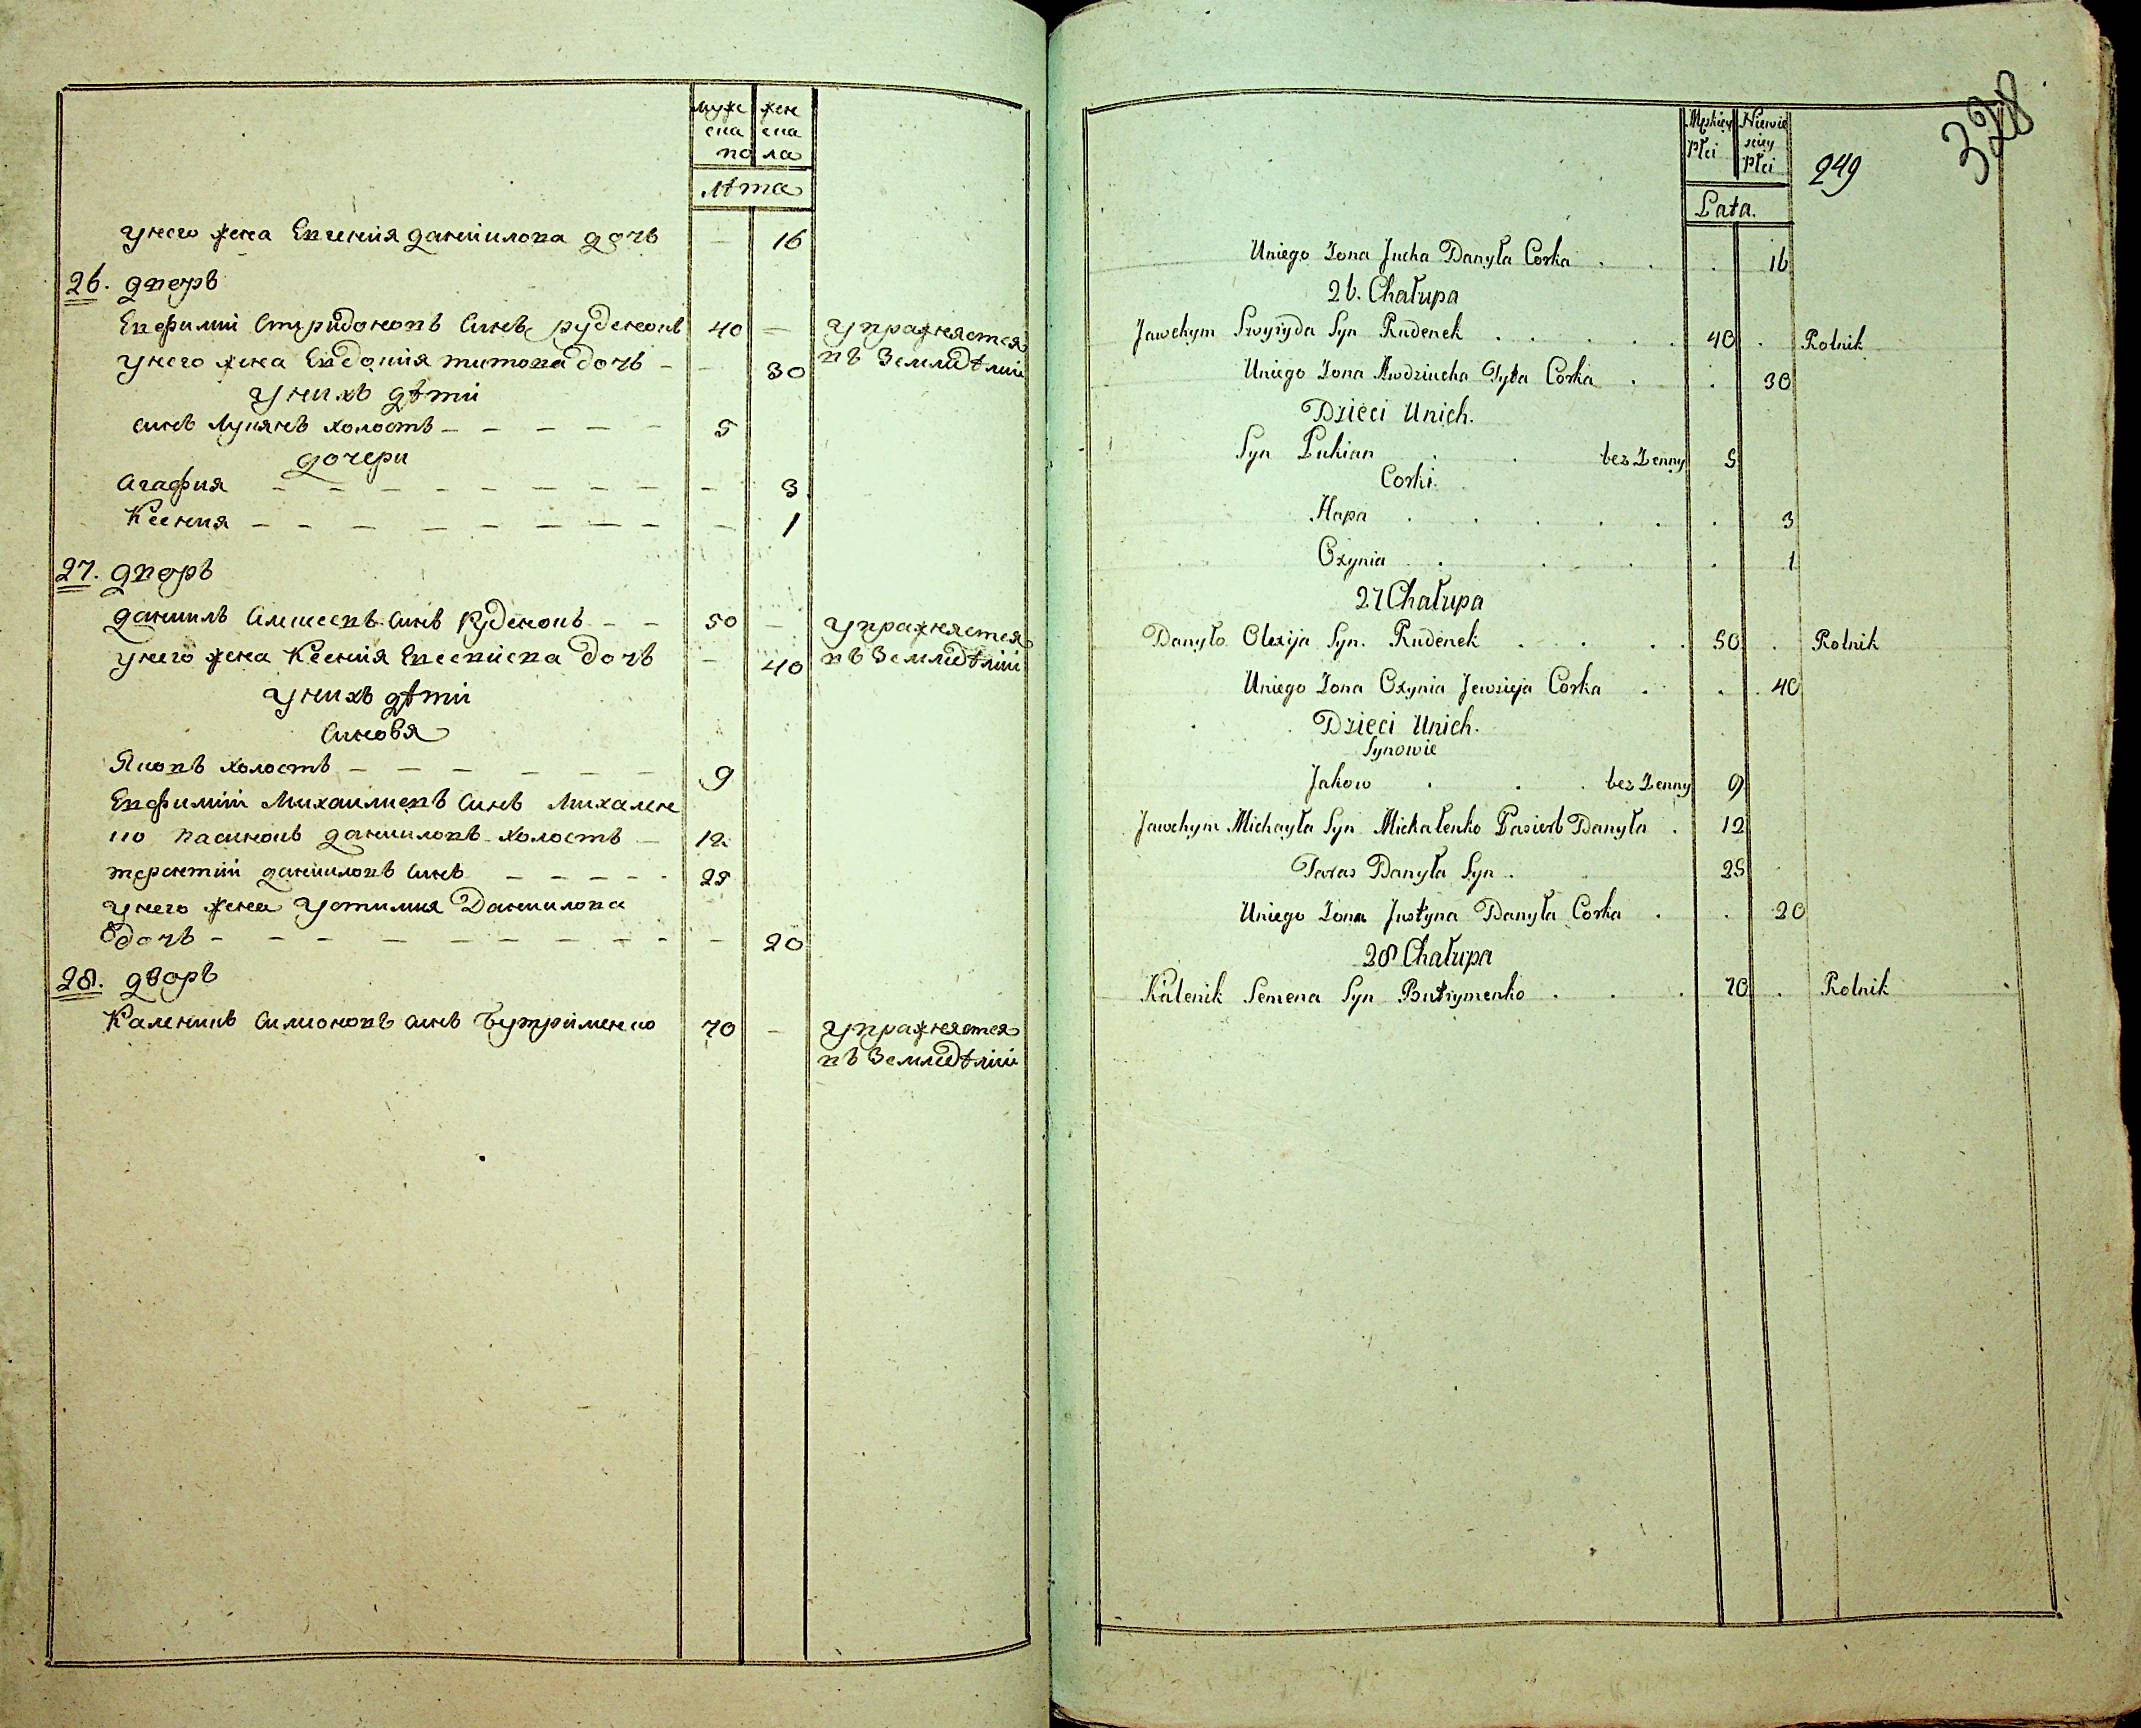 муже жен
ска ска
по ла
Лѣта
унего жена Евгения даниилова дочь — 16
26. дворъ
Евфимий Спиридоновъ сынъ руденокъ 40 — упражняется
унего жена Евдокия титова дочь — — 30 въ Земледѣлии
у нихъ дѣти
сынъ Лукянъ холостъ — — — — — 5
дочери
Агафия — — — — — — — — — 3
Ксения — — — — — — — — — 1
27. дворъ
даниилъ Алексеевъ сынъ Руденокъ — — 50 — упражняется
унего жена Ксения Евсеиева дочь — 40 въ Земледѣлии
у нихъ дѣти
сыновя
Яковъ холостъ — — — — — — 9
Евфимий Михаилиевъ сынъ Михален
ко пасынокъ данииловъ холостъ — 12
терентий данииловъ сынъ — — — — - 25
унего жена Устиния Даниилова
дочь - — - — — — — — — - — 20
28. дворъ
Каленикъ Симионовъ сынъ Бутрименко 70 — упражняется
въ Земледѣлии
328
Męskiey Niewie
Płci sciey
Płci
249
Lata.
Uniego Zona Jucha Danyła Corka . . . 16
26. Chałupa
Jawchym Swyryda Syn Rudenek . . . . . 40 . Rolnik
Uniego Zona Awdziucha Tyta Corka . . 30
Dzieci Unich.
Syn Łukian . . bez Zenny 5
Corki.
Hapa . . . . . . 3
Oxynia . . . . . 1
27 Chałupa
Danyło Olexija Syn. Rudenek . . . . 50 . Rolnik
Uniego Zona Oxynia Jewsieja Corka . . . 40
Dzieci Unich.
Synowie
Jakow . . . bez Zenny 9
Jawchym Michayła Syn Michalenko Pasierb Danyła . 12
Taras Danyła Syn . 25
Uniego Zona Justyna Danyła Corka . . . 20
28 Chałupa
Kalenik Semena Syn Butrymenko . . . 70 . Rolnik